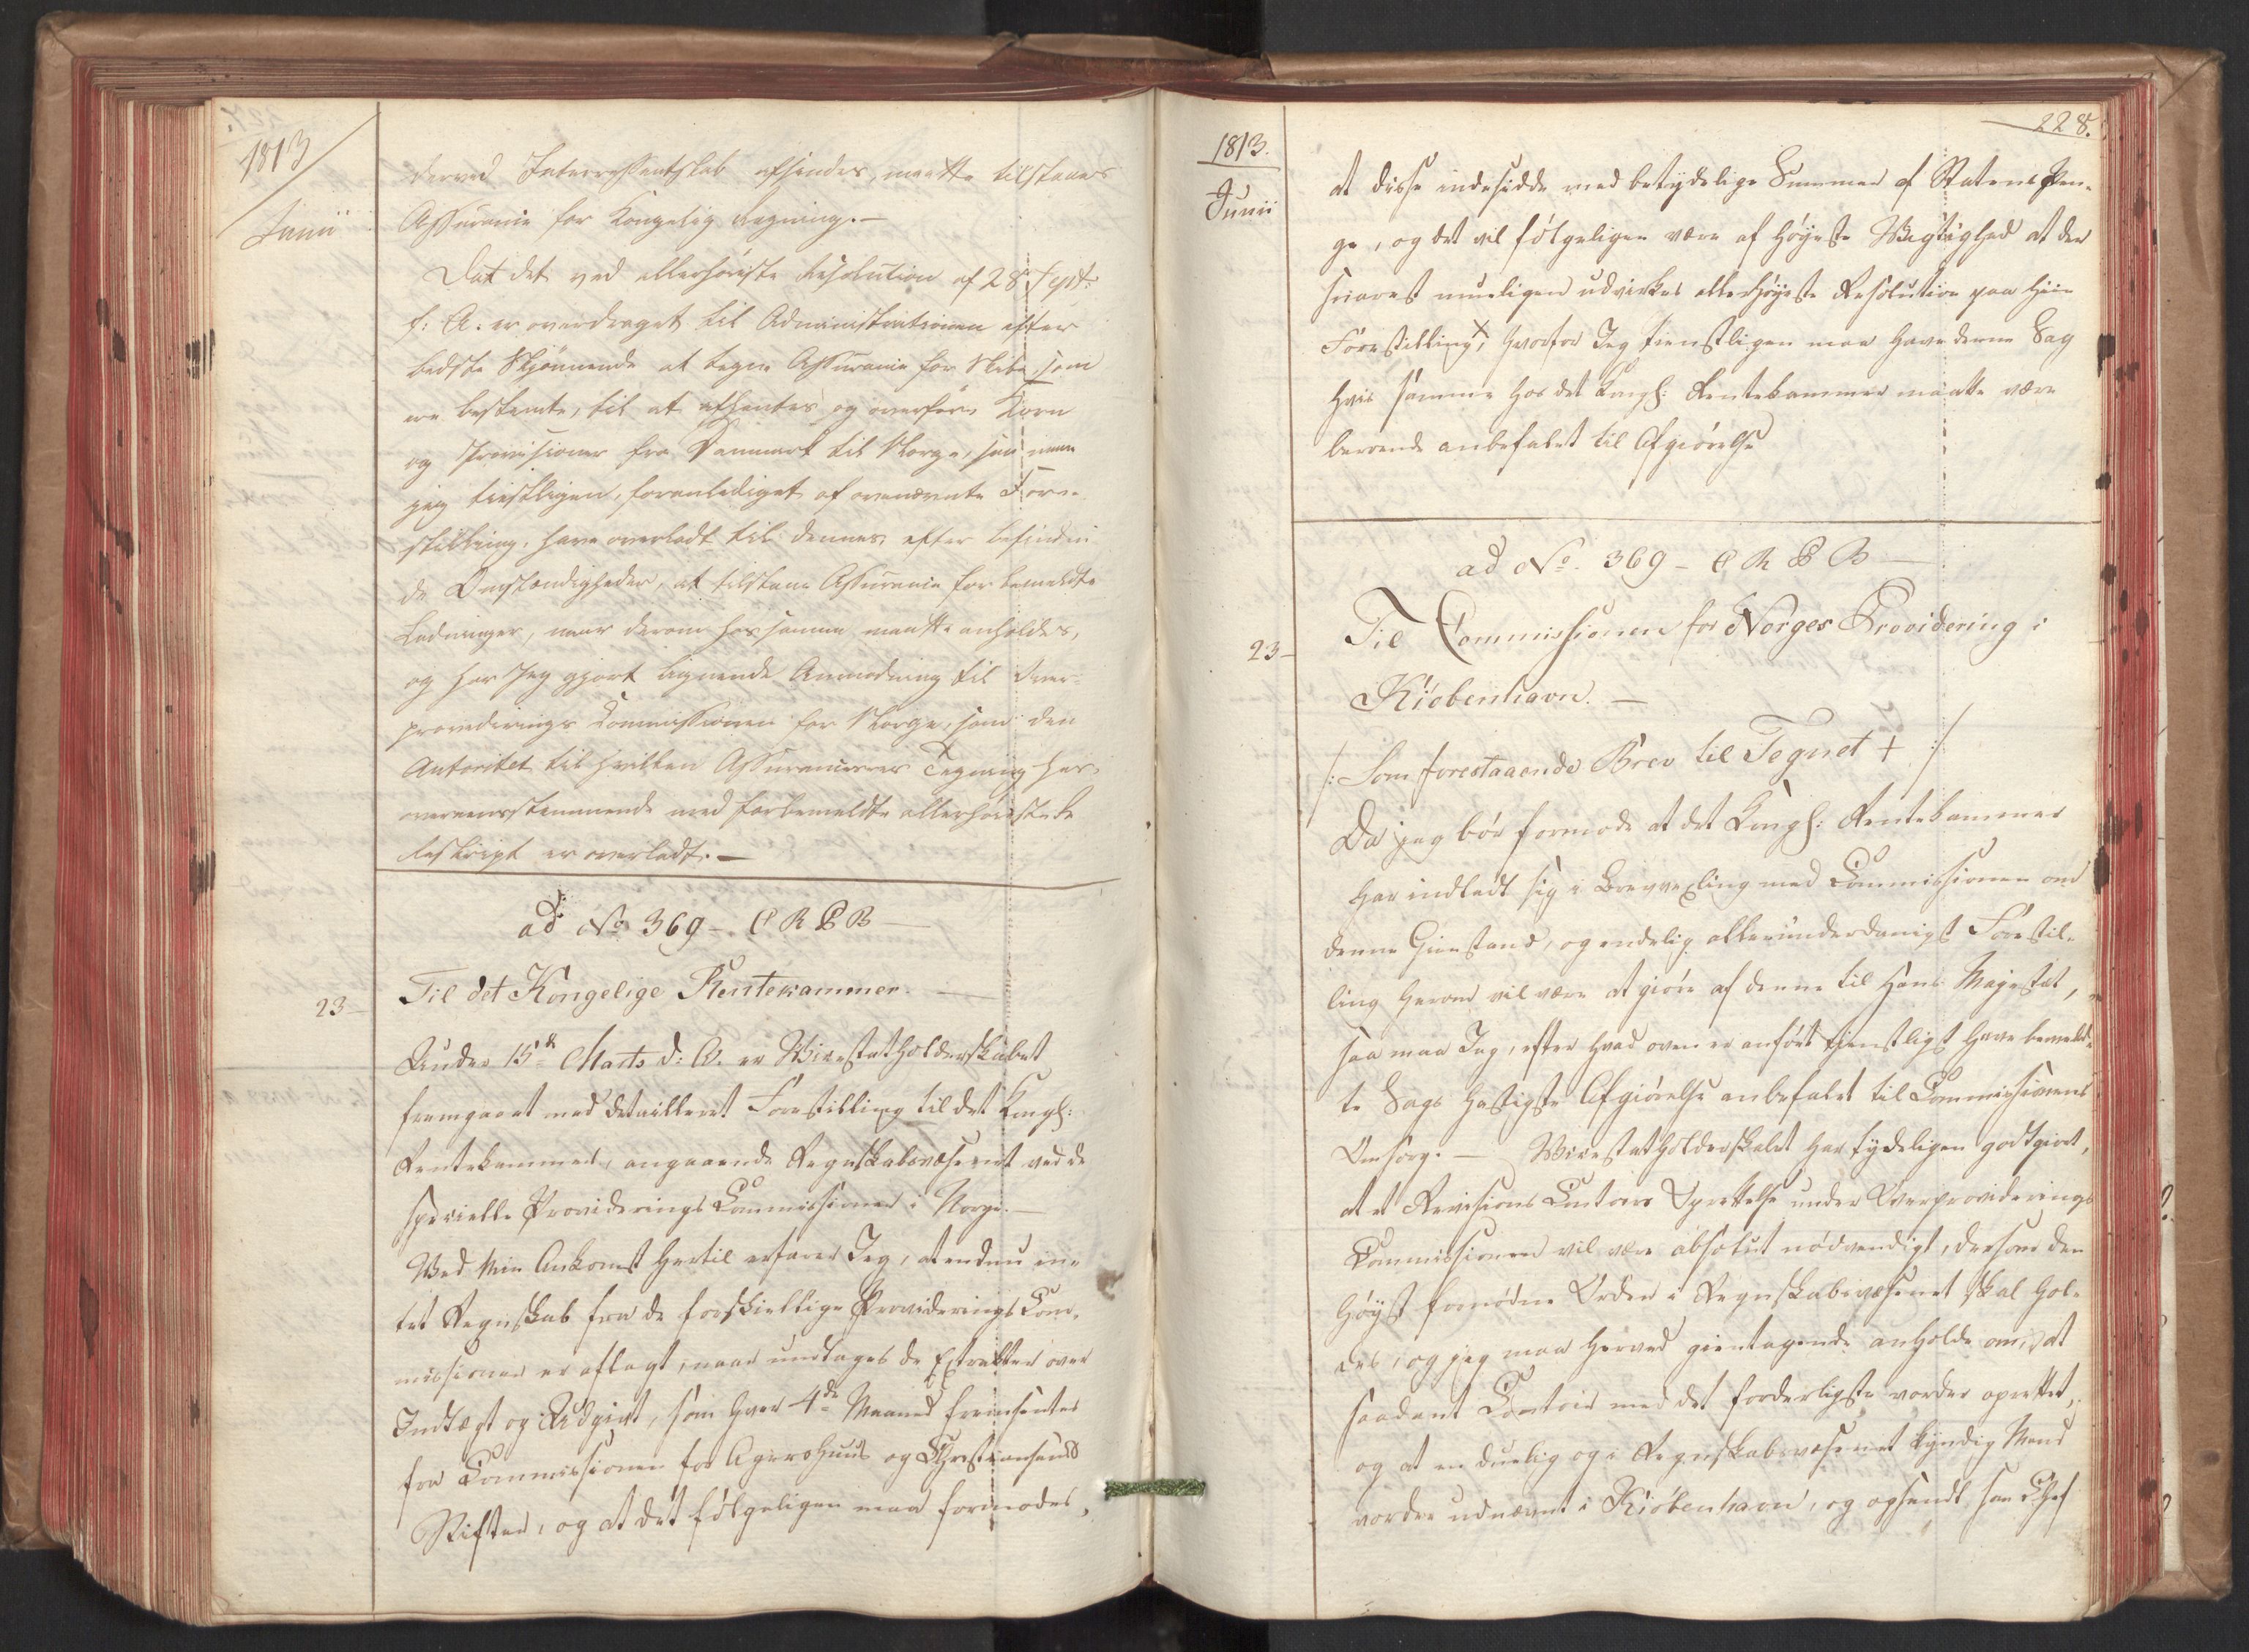 1813
Junii
derved Interessentskab afsendes, maatte tilstaaes
Assurance for Kongelig Regning.—
Da det ved allerhøieste Resolution af 28 Septr.
f: A: er overdraget til Administrationen efter
bedste Skjønnende at tegne Assurance for Skibe, som
ere bestemte, til at afhente og overføre Korn
og Provisioner fra Danmark til Norge, saa maa
jeg tienstligen, foranlediget af ovennævnte Fore-
stilling, have overladt til dennes, efter befinden-
de Omstændigheder, at tilstaae Assurance for bemeldte
Ladninger, naar derom hos samme maatte anholdes,
og har Jeg gjort lignende Anmodning til Over-
provederings Commissionen for Norge, som den
Autoritet til hvilken Assurancernes Tegning her,
overeensstemmende med forbemeldte allerhøieste
Reskript er overladt.—
ad No 369 – C R P B —
23— Til det Kongelige Rentekammer. —
Under 15de Marts d: A. er Vicestatholderskabet
fremgaaet med detailleret Forestilling til det Kongl:
Rentekammer, angaaende Regnskabsvæsenet ved de
specielle Proviederings Commissioner i Norge.—
Ved min Ankomst hertil erfarer Jeg, at endnu in-
tet Regnskab fra de forskiellige Provideringscom-
missioner er aflagt, naar undtages de Extracter over
Indtægt og Udgivt, som hver 4de Maaned fremsendes
fra Commissionen for Aggershuus og Christiansands
Stifter, og at det følgeligen maa formodes,
1813.
Junii
228.
at disse indesidde med betydelige Summer af Statens Pen-
ge, og det vil følgeligen være af høyeste Wigtighed at der
snarest mueligen udvirkes allerhøyeste Resolution paa hiin
Forestilling X, hvorfor Jeg tienstligen maa have denne Sag
hvis samme hos det Kongl: Rentekammer maatte være
beroende anbefalet til Afgiørelse
ad No. 369 – C R P B —
23— Til Commissionen for Norges Providering i
Kiøbenhavn. —
/: Som forestaaende Brev til Tegnet + :/
Da jeg bør formode at det Kongl: Rentekammer
har indladt sig i Brevvexling med Commissionen om
denne Gienstand, og endelig allerunderdanigst Forestil-
ling herom vil være at giøre af denne til Hans Majestæt,
saa maa Jeg, efter hvad oven er anført tienstligst have bemeld-
te Sags hastigste Afgiørelse anbefalet til Commissionens
Omsorg. — Vicestatholderskabet har tydeligen godtgiort,
at et Revisions Contoirs Oprettelse under Overproviderings
Commissionen vil være absolut nødvendigt, dersom den
høyst fornødne Orden i Regnskabsvæsenet skal hol-
des, og jeg maa herved gientagende anholde om, at
saadant Contoir med det forderligste vorder oprettet,
og at en duelig og i Regnskabsvæsenet kyndig Mand
vorder udnævnt i Kiøbenhavn, og opsendt som Chef